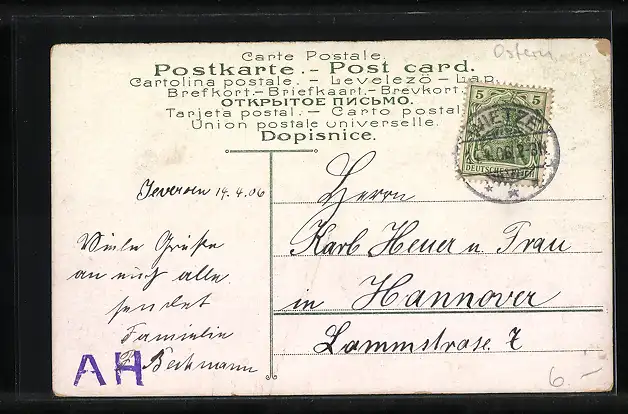 Ostern
Carte Postale.
Postkarte. - Post card.
Cartolina postale. - Levelezö - Lap.
Brefkort. - Briefkaart. - Brevkort.
ОТКРЫТОЕ ПИСЬМО.
Tarjeta postal. - Carto postal
Union postale universelle.
Dopisnice.
5 5
WIETZE
DEUTSCHES REICH
Jeversen 14.4.06
Herrn
Karl Heuer u. Frau
in Hannover
Lammstrase. 7
Viele Grüße
an euch alle.
sendet
Familie
Beckmann
AH
6.-